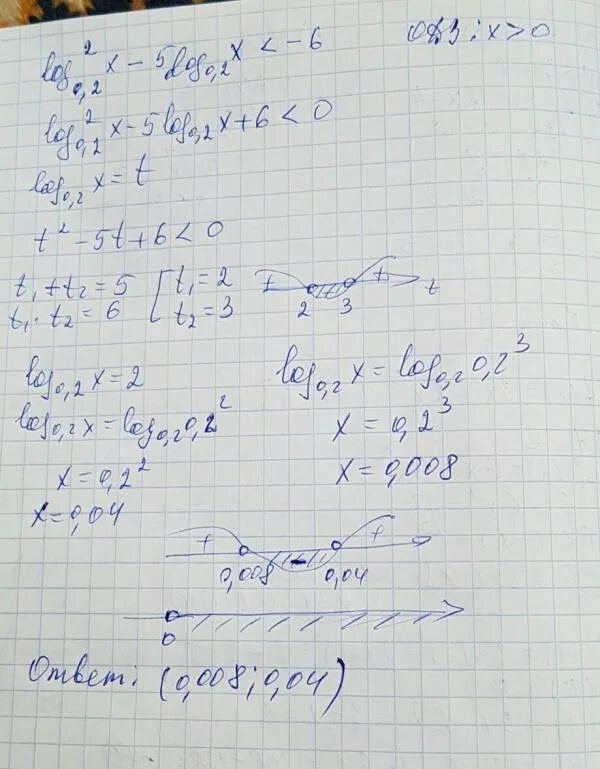 log²₀,₂ x - 5log₀,₂ x < -6 ОДЗ: x > 0
log²₀,₂ x - 5log₀,₂ x + 6 < 0
log₀,₂ x = t
t² - 5t + 6 < 0
t₁ + t₂ = 5 [ t₁ = 2
t₁ · t₂ = 6 [ t₂ = 3
+ + 
2 3 t
log₀,₂ x = 2
log₀,₂ x = log₀,₂ 0,2²
x = 0,2²
x = 0,04
log₀,₂ x = log₀,₂ 0,2³
x = 0,2³
x = 0,008
+ - +
0,008 0,04
0
Ответ: (0,008; 0,04)